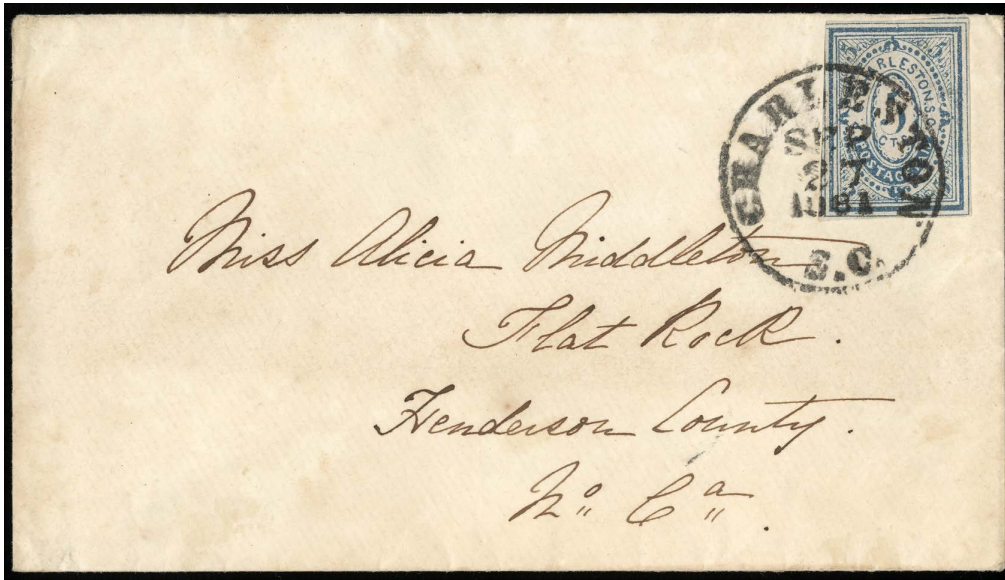 5 5
CHARLESTON. S.C.
5
CTS
POSTAGE
CHARLESTON.
SEP
27
1861
S.C.
Miss Alicia Middleton
Flat Rock.
Henderson County.
No. Ca.